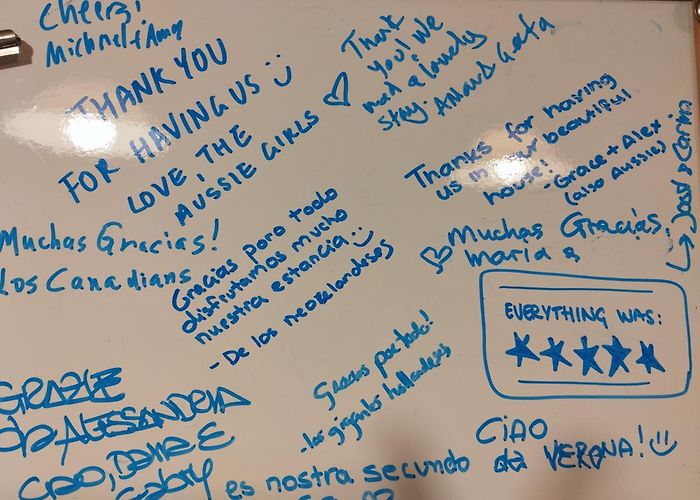 Cheerz!
Michael & Amy
THANK YOU
FOR HAVING US :)
LOVE, THE
AUSSIE GIRLS
Thank
you! We
had a lovely
stay.
Thanks for having
us in your beautiful
house!
- Grace + Alex
(also Aussie)
Muchas Gracias!
Los Canadians
Gracias poro todo
disfrutamos mucho
nuestra estancia :)
- De los neozelandeses
Muchas Gracias,
Maria &
EVERYTHING WAS:
★★★★★
Gracias por todo!
-los gigantes hollandeses
GRAZIE
da ALESSANDRIA
CIAO,
Gabry
es nostra secundo
CiAO
da VERONA! :)